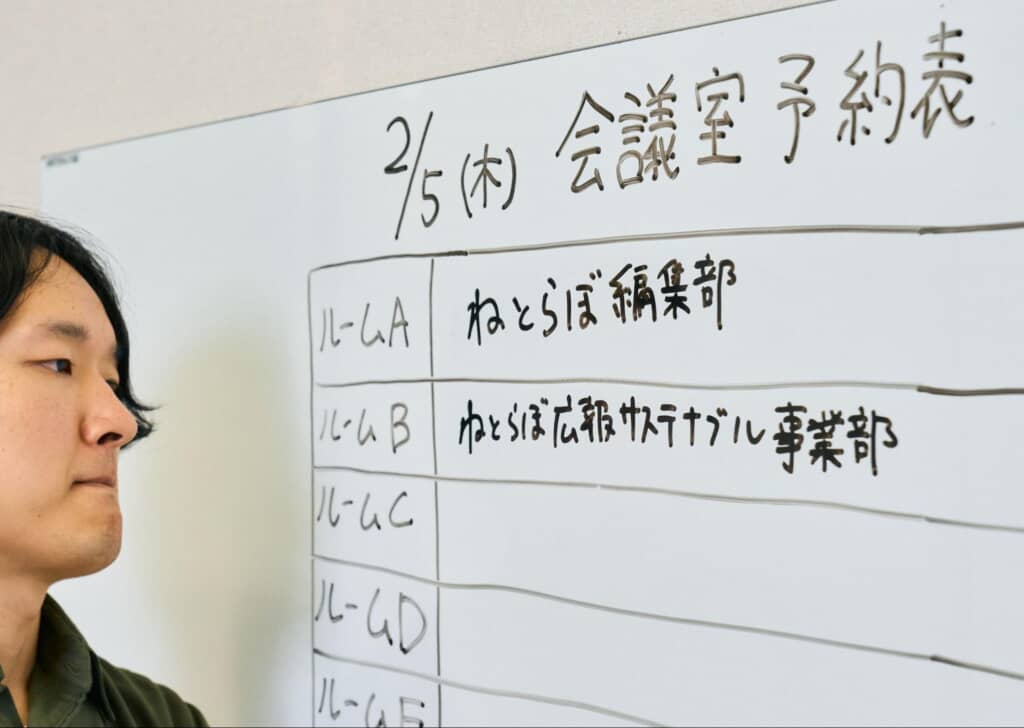 2/5(木) 会議室予約表
ルームA ねとらぼ編集部
ルームB ねとらぼ広報サステナブル事業部
ルームC
ルームD
ルームE